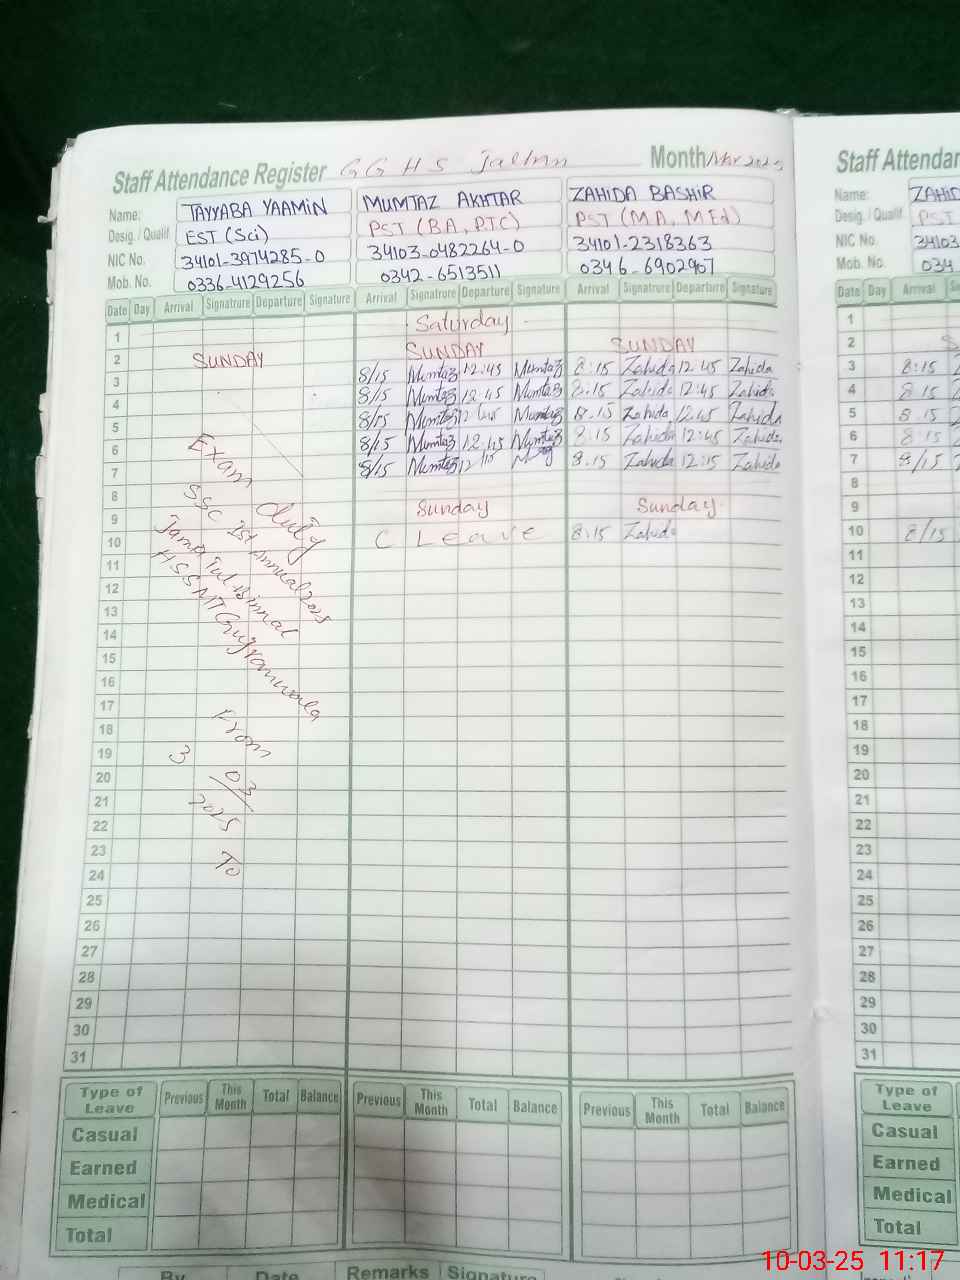 Staff Attendance Register G G H S Month Mar 2025
Name: TAYYABA YAAMIN MUMTAZ AKHTAR ZAHIDA BASHIR
Desig. / Qualif EST (Sci) PST (BA, PTC) PST (MA, MEd)
NIC No. 34101-3974285-0 34103-0482264-0 34101-2318363
Mob. No. 0336-4129256 0342-6513511 0346-6902907
Date Day Arrival Signatrure Departure Signature Arrival Signatrure Departure Signature Arrival Signatrure Departure Signature
1 Saturday
2 SUNDAY SUNDAY SUNDAY
3 8/15 Mumtaz 12:45 Mumtaz 8:15 Zahida 12:45 Zahida
4 8/15 Mumtaz 12:45 Mumtaz 8:15 Zahida 12:45 Zahida
5 8/15 Mumtaz 12:45 Mumtaz 8.15 Zahida 12:45 Zahida
6 8/15 Mumtaz 12:45 Mumtaz 8:15 Zahida 12:45 Zahida
7 8/15 Mumtaz 12/15 8.15 Zahida 12:15 Zahida
8
9 Sunday Sunday
10 C Leave 8:15 Zahida
11
12
13
14
15
16
17
18
19
20
21
22
23
24
25
26
27
28
29
30
31
Exam duty
SSC 1st Annual 2025
HSS MT
From
3
03
2025
To
Type of Leave Previous This Month Total Balance Previous This Month Total Balance Previous This Month Total Balance
Casual
Earned
Medical
Total
By Date Remarks Signature
Staff Attendan
Name: ZAHID
Desig. / Qualif PST
NIC No. 34103
Mob. No. 034
Date Day Arrival
1
2 S
3 8:15
4 8.15
5 8.15
6 8:15
7 8/15
8
9
10 8/15
11
12
13
14
15
16
17
18
19
20
21
22
23
24
25
26
27
28
29
30
31
Type of Leave Previous
Casual
Earned
Medical
Total
10-03-25 11:17